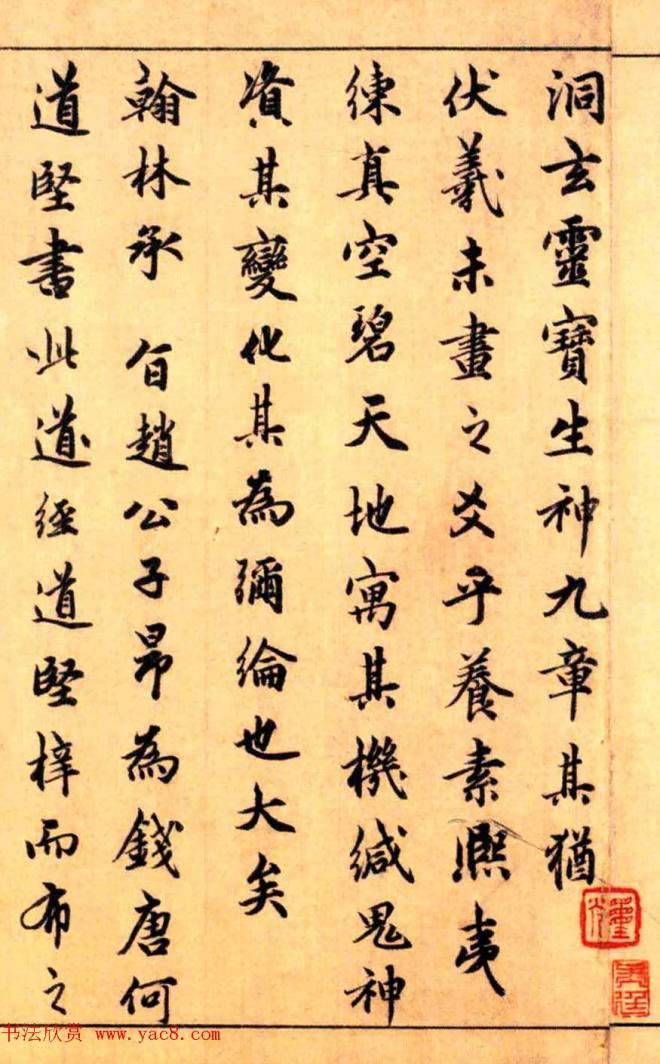 洞玄靈寶生神九章其猶
伏羲未畫之爻乎養素熙夷
練真空碧天地寓其機緘鬼神
資其變化其為彌綸也大矣
翰林承 旨趙公子昂為錢唐何
道堅書此道經道堅梓而布之
书法欣赏 www.yac8.com